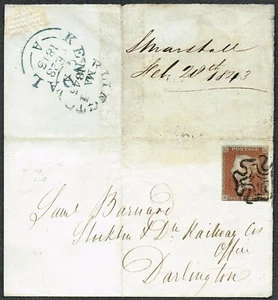 KENDAL
FE 28
1843
A
DARLINGTON
MA 1
1843
S Marshall
Feb 28th 1843
POSTAGE
Saml Barnard
Stockton & Dn Railway Cos
Office
Darlington